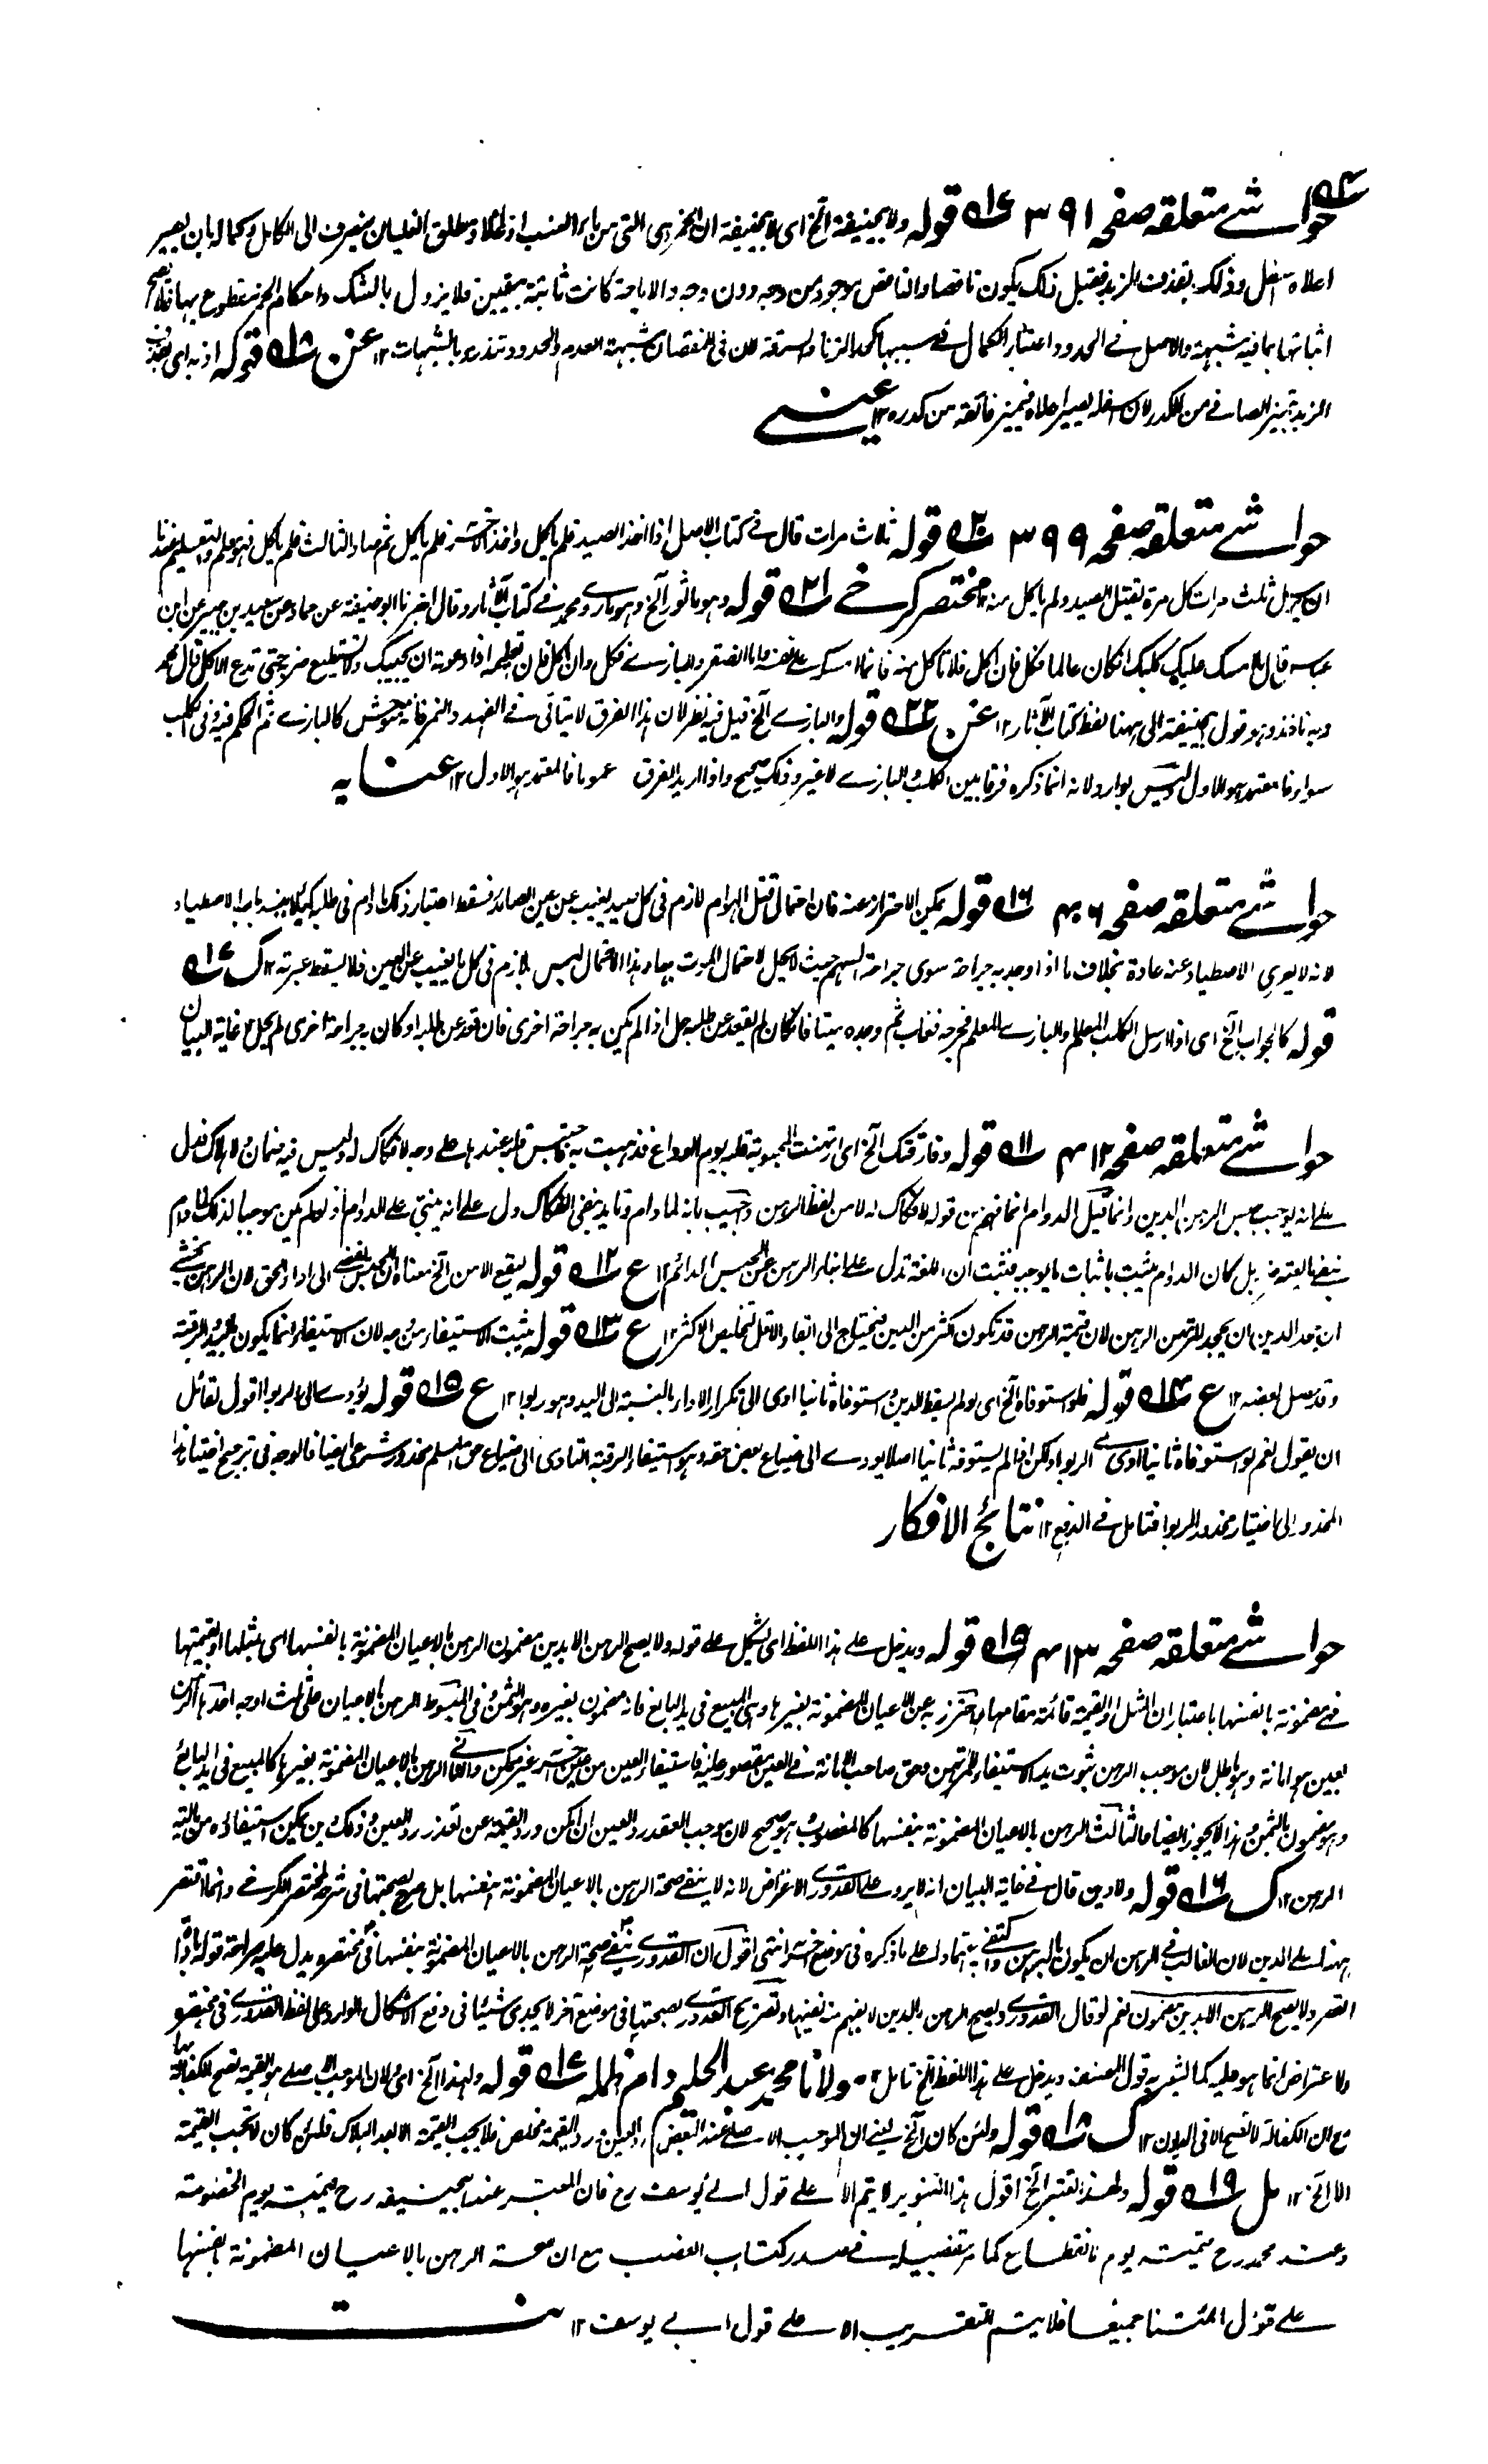 حواشے متعلقہ صفحہ ٣٩١ قولہ ولابیحنیفۃ الخ ای لابیحنیفۃ ان الخمر ہی التی من ماء العنب اذا غلا ومطلق الغلیان ینصرف الی الکامل وکمالہ بان یصیر
اعلاہ اسفل وذلک بقذف الزبد فقبل ذلک یکون ناقصا والناقص موجود من وجہ دون وجہ والاباحۃ کانت ثابتۃ بیقین فلا یزول بالشک واحکام الخمر مقطوع بہا فلا یصح
اثباتہا بما فیہ شبہۃ والاصل فے الحدود اعتبار الکمال فے سببہا کحد الزنا والسرقۃ لان فی النقصان شبہۃ العدم والحدود تندرء بالشبہات ١٢ عن قولہ اذ بہ ای بقذف
الزبد یتمیز الصافے من الکدر لان اسفلہ یصیر اعلاہ فیتمیز من کدرہ ١٢ عینے
حواشے متعلقہ صفحہ ٣٩٩ قولہ ثلاث مرات قال فے کتاب الاصل اذا اخذ الصید فلم یاکل واخذ الآخر فلم یاکل ثم صاد الثالث فلم یاکل فہو معلم
ان یرسل ثلث مرات کل مرۃ یقتل الصید ولم یاکل منہ ١٢ مختصر کرخے قولہ وہو ماثور الخ وہو ما روی محمد فے کتاب الآثار وقال اخبرنا ابو حنیفۃ عن حماد عن سعید بن جبیر عن ابن
عباس قال ما امسک علیک کلبک ان کان عالما فکل فان اکل فلا تاکل منہ فانما امسک علی نفسہ واما الصقر والبازے فکل وان اکل فان تعلیمہ اذا دعوتہ ان یجیبک ولا تستطیع ضربہ حتی یدع الاکل قال محمد
وبہ ناخذ وہو قول ابیحنیفۃ الی ہہنا لفظ کتاب الآثار ١٢ عن قولہ والبازے الخ قیل فیہ نظر لان ہذا الفرق لا یتاتی فے الفہد والنمر فانہ متوحش کالبازے ثم الحکم فیہ وفی الکلب
سواء فالمعتمد ہو الاول ولیس بوارد لانہ انما ذکرہ فرقا بین الکلب والبازے لا غیر وذلک صحیح واذا ارید الفرق عموما فالمعتمد ہو الاول ١٢ عنایہ
حواشے متعلقہ صفحہ ٤٠٦ قولہ یمکن الاحتراز عنہ فان احتمال قتل الہوام لازم فی کل صید یغیب عن عین الصائد فسقط اعتبار ذلک ما دام فی طلبہ کیلا ینسد باب الاصطیاد
لانہ لا یعری الاصطیاد عنہ عادۃ بخلاف ما اذا وجد بہ جراحۃ سوی جراحۃ السہم حیث لا یحل لاحتمال الموت بہا وہذا الاحتمال لیس بلازم فی کل ما یغیب عن العین فلا یسقط عبرتہ ١٢ ک
قولہ کالجواب الخ ای اذا ارسل الکلب المعلم والبازے المعلم فجرحہ فغاب ثم وجدہ میتا فان کان لم یقعد عن طلبہ حل اذا لم یکن بہ جراحۃ اخری فان قعد عن طلبہ او کان بہ جراحۃ اخری لم یحل ١٢ غایۃ البیان
حواشے متعلقہ صفحہ ٤١٢ قولہ وفارقتک الخ ای ارتہنت المحبوبۃ قلبہ یوم الوداع فذہبت بہ علی وجہ لا فکاک لہ ولیس فیہ ضمان ولا ہلاک فدل
علی انہ یوجب حبس الرہن بالدین وانما قیل الدوام انما فہم من قولہ لا فکاک لہ لا من لفظ الرہن واجیب بانہ لما دام وتابد بنفی الفکاک دل علی انہ ینبئ علی الدوام اذ لو لم یکن موجبا لذلک لما دام
بنفی بل کان الدوام یثبت باثبات ما یوجبہ فثبت ان اللغۃ تدل علی انباء الرہن عن الحبس الدائم ١٢ ع قولہ لیقع الامن الخ معناہ ان الحبس یفضے الی اداء الحق لان الراہن یخشے
ان جحد الدین ان یجحد المرتہن الرہن لان قیمۃ الرہن قد تکون اکثر من الدین فیحتاج الی ایفاء الاقل لتخلیص الاکثر ١٢ ع قولہ یثبت الاستیفاء من وجہ لان الاستیفاء انما یکون بالید والرقبۃ
وقد حصل بعضہ ١٢ ع قولہ فلو استوفاہ الخ ای لو لم یسقط الدین واستوفاہ ثانیا ادی الی تکرار الاداء بالنسبۃ الی الید وہو ربوا ١٢ ع قولہ یؤدے الی الربوا اقول لقائل
ان یقول نعم لو استوفاہ ثانیا ادی الی الربوا ولکن اذا لم یستوفہ ثانیا اصلا یودے الی ضیاع بعض حقہ وہو استیفاء الرقبۃ التادی الی ضیاع حق المسلم محذور شرعی ایضا فما الوجہ فی ترجیح اختیار ہذا
المحذور الی اختیار محذور الربوا فتامل فے الدفع ١٢ نتائج الافکار
حواشے متعلقہ صفحہ ٤١٣ قولہ ویدخل علے ہذا اللفظ ای یشکل علے قولہ ولا یصح الرہن الا بدین مضمون الرہن بالاعیان المضمونۃ بانفسہا ای بمثلہا او بقیمتہا
فہی مضمونۃ بانفسہا باعتبار ان المثل او القیمۃ قائمۃ مقامہا واحترز بہ عن الاعیان المضمونۃ بغیرہا وہی المبیع فی ید البائع فانہ مضمون بغیرہ وہو الثمن وفی المبسوط الرہن بالاعیان علی ثلث اوجہ احدہا الرہن
بعین ہو امانۃ وہو باطل لان موجب الرہن ثبوت ید الاستیفاء للمرتہن وحق صاحب الامانۃ فے العین مقصور علیہ فاستیفاء العین من عین آخر غیر ممکن والثانی الرہن بالاعیان المضمونۃ بغیرہا کالمبیع فی ید البائع
وہو مضمون بالثمن وہذا لا یجوز ایضا والثالث الرہن بالاعیان المضمونۃ بنفسہا کالمغصوب وہو صحیح لان موجب العقد رد العین ان امکن ورد القیمۃ عن تعذر رد العین وذلک دین یمکن استیفاؤہ من مالیۃ
الرہن ١٢ ک قولہ ولا دین قال فے غایۃ البیان انہ لا یرد علے القدوری الاعتراض لانہ لا ینفے صحۃ الرہن بالاعیان المضمونۃ بنفسہا بل صرح بصحتہا فی شرحہ لمختصر الکرخے وانما اقتصر
ہہنا علے الدین لان الغالب فی الرہن ان یکون بالدین واکتفے بہ اعتمادا علے ما ذکرہ فی موضع آخر انتہی اقول ان القدوری ینفے صحۃ الرہن بالاعیان المضمونۃ بنفسہا فی مختصرہ یدل علیہ صراحۃ قولہ باداۃ
القصر ولا یصح الرہن الا بدین مضمون نعم لو قال القدوری ویصح الرہن بالدین لا یفہم منہ نفیہا وتصریح القدوری بصحتہا فی موضع آخر لا یجدی شیئا فی دفع الاشکال الوارد علی لفظ القدوری فی مختصرہ
والاعتراض انما ہو علیہ کما یشعر بہ قول المصنف ویدخل علے ہذا اللفظ الخ تامل ١٢ مولانا محمد عبد الحلیم دام ظلہ قولہ ولہذا الخ ای ولان الموجب الاصلے ہو القیمۃ تصح الکفالۃ بہا
مع ان الکفالۃ لا تصح الا فی الدیون ١٢ ک قولہ ولئن کان الخ یعنے ان الموجب الاصلے عند البعض رد العین ورد القیمۃ مخلص فلا یجب القیمۃ الا بعد الہلاک فلئن کان لا تجب القیمۃ
الا الخ ١٢ مل قولہ ولہذا تعتبر الخ اقول ہذا التنویر لا یتم الا علے قول ابے یوسف رح فان المعتبر عند ابیحنیفہ رح قیمتہ یوم الخصومۃ
وعند محمد رح قیمتہ یوم الانقطاع کما مر تفصیلہ فے صدر کتاب الغصب مع ان صحۃ الرہن بالاعیان المضمونۃ بنفسہا
علے قول ائمتنا جمیعا فلا یتم التقریب الا علے قول ابے یوسف ١٢ نت